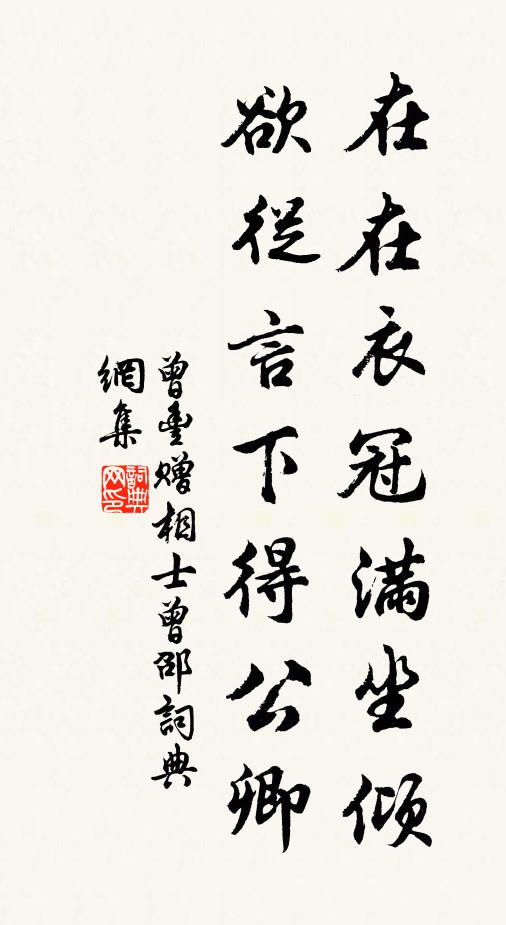 在在衣冠滿坐傾
欲從言下得公卿
曾豐贈相士曾邵詞典
網集
詞典網印